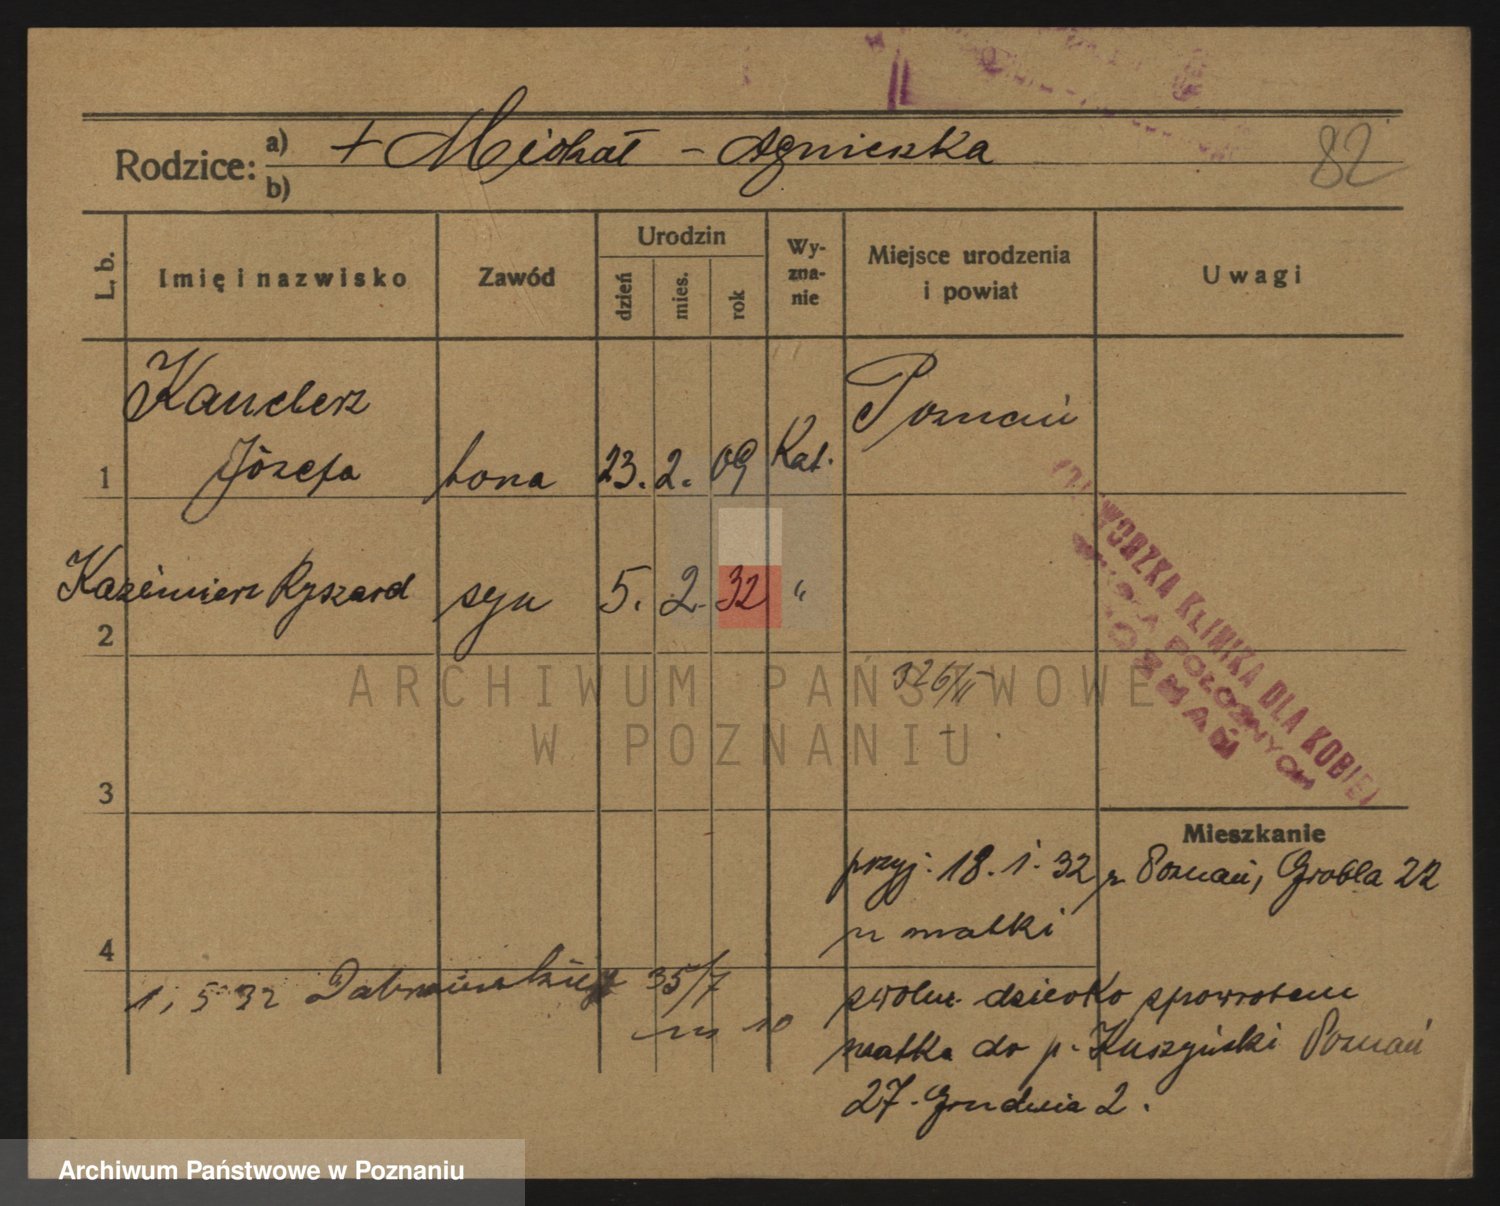 82
Rodzice: a) + Michał - Agnieszka
b)
L. b.
Imię i nazwisko
Zawód
Urodzin
dzień
mies.
rok
Wy-
zna-
nie
Miejsce urodzenia
i powiat
Uwagi
Kauclerz
Józefa
1
bona
23. 2. 09
Kat.
Poznań
Kazimierz Ryszard
2
syn
5. 2. 32
"
KLINIKA DLA KOBIET
POŁOŻNYCH
POZNAŃ
326/II
ARCHIWUM PAŃSTWOWE
W POZNANIU
3
Mieszkanie
przyj. 18. 1. 32 Poznań, Grobla 22
u matki
4
1, 5 32 Dąbrowskiego 35/7
m 10
zwoln. dziecko spowrotem
matka do p. Kuszyński Poznań
27. Grudnia 2.
Archiwum Państwowe w Poznaniu